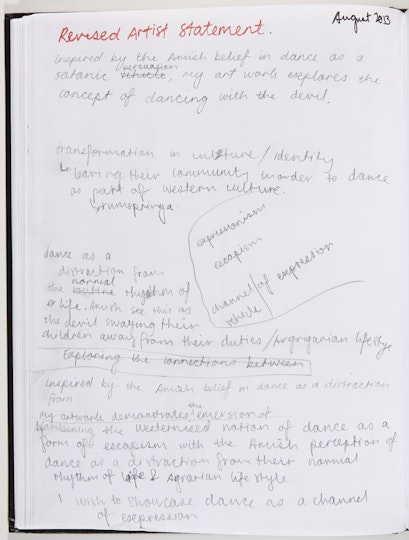 August 2013
Revised Artist Statement.
Inspired by the Amish belief in dance as a
persuasion
satanic vehicle, my art work explores the
concept of dancing with the devil.
transformation in culture/identity
↳ leaving their community inorder to dance
as part of western culture.
↳ rumspringa.
expressionism
escapism
channel/of expression
vehicle
dance as a
distraction from
normal
the routine rhythm of
life. Amish see this as
the devil swaying their
children away from their duties/Argrigarian lifestyle
Exploring the connections between
Inspired by the Amish belief in dance as a distraction
from
the
my artwork demonstrates emersion of
the westernised notion of dance as a
form of escapism with the Amish perception of
dance as a distraction from their normal
rhythm of life & Agrarian lifestyle
I wish to showcase dance as a channel
of expression